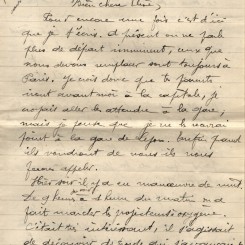 Bien chère Aline,
Pour encore une fois c'est d'ici
que je t'écris. A présent on ne parle
plus de départ imminent, ceux que
nous devons remplacer sont toujours à
Paris. Je crois donc que tes parents
iront avant moi à la capitale, je
croyais aller les attendre à la gare,
mais je pense que je ne le saurai
point à la gare de Lyon. Enfin quand
ils voudront de nous ils nous
feront appeler.
Hier soir il y a eu manœuvre de nuit
du matin on a
fait marcher le projecteur oxygène.
C'était très intéressant, il s'agissait
de découvrir